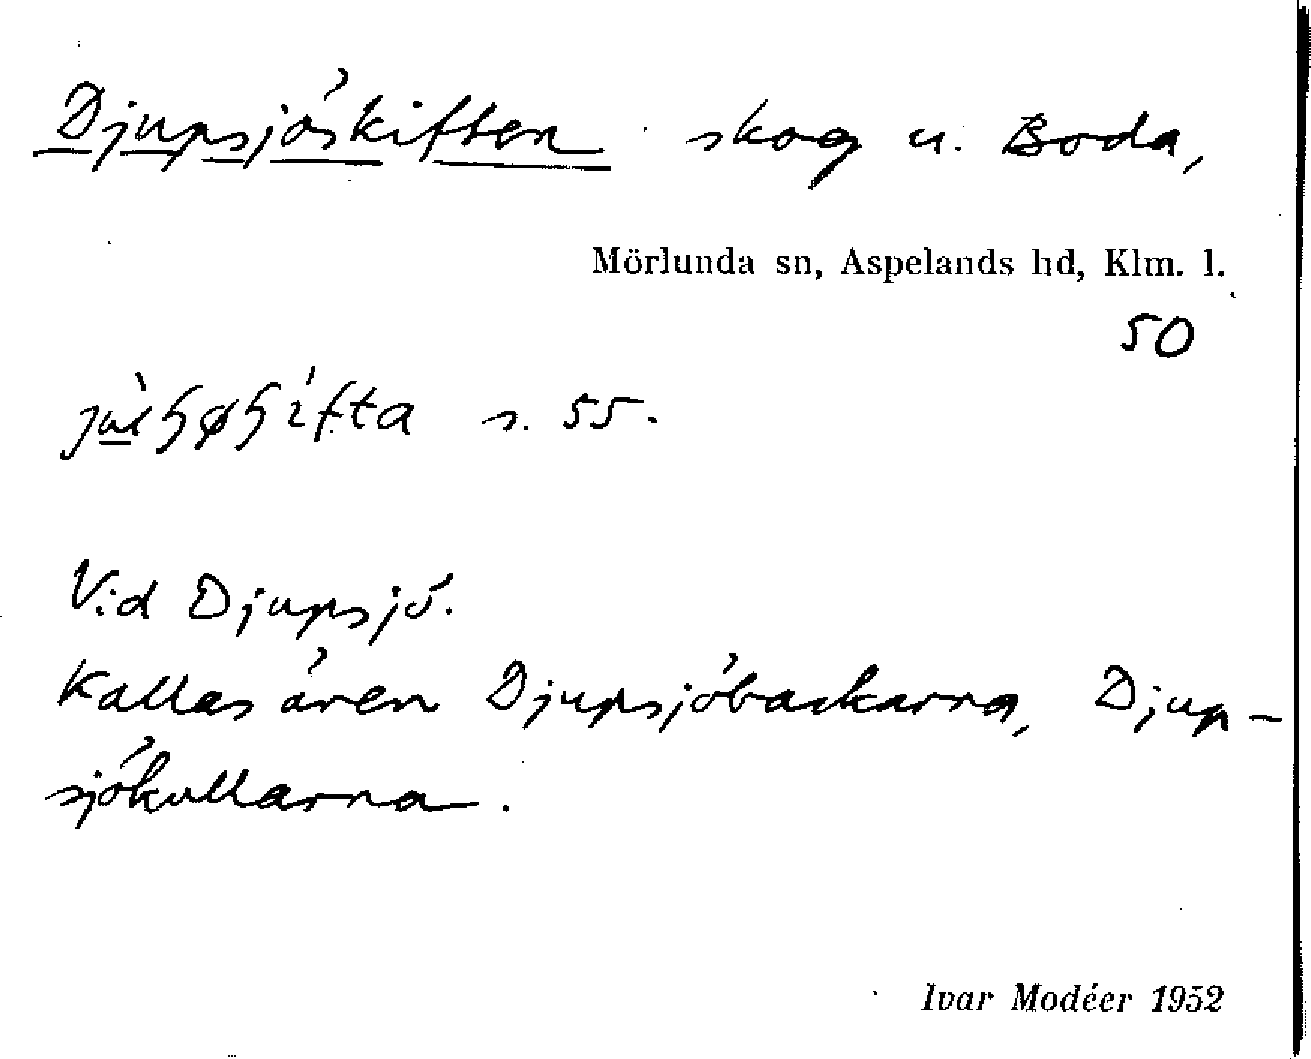 Djupsjöskiften skog u. Boda,
Mörlunda sn, Aspelands hd, Klm. l.
50
s. 55.
Vid Djupsjö.
Kallas även Djupsjöbackarna, Djup-
sjökullarna.
Ivar Modéer 1952